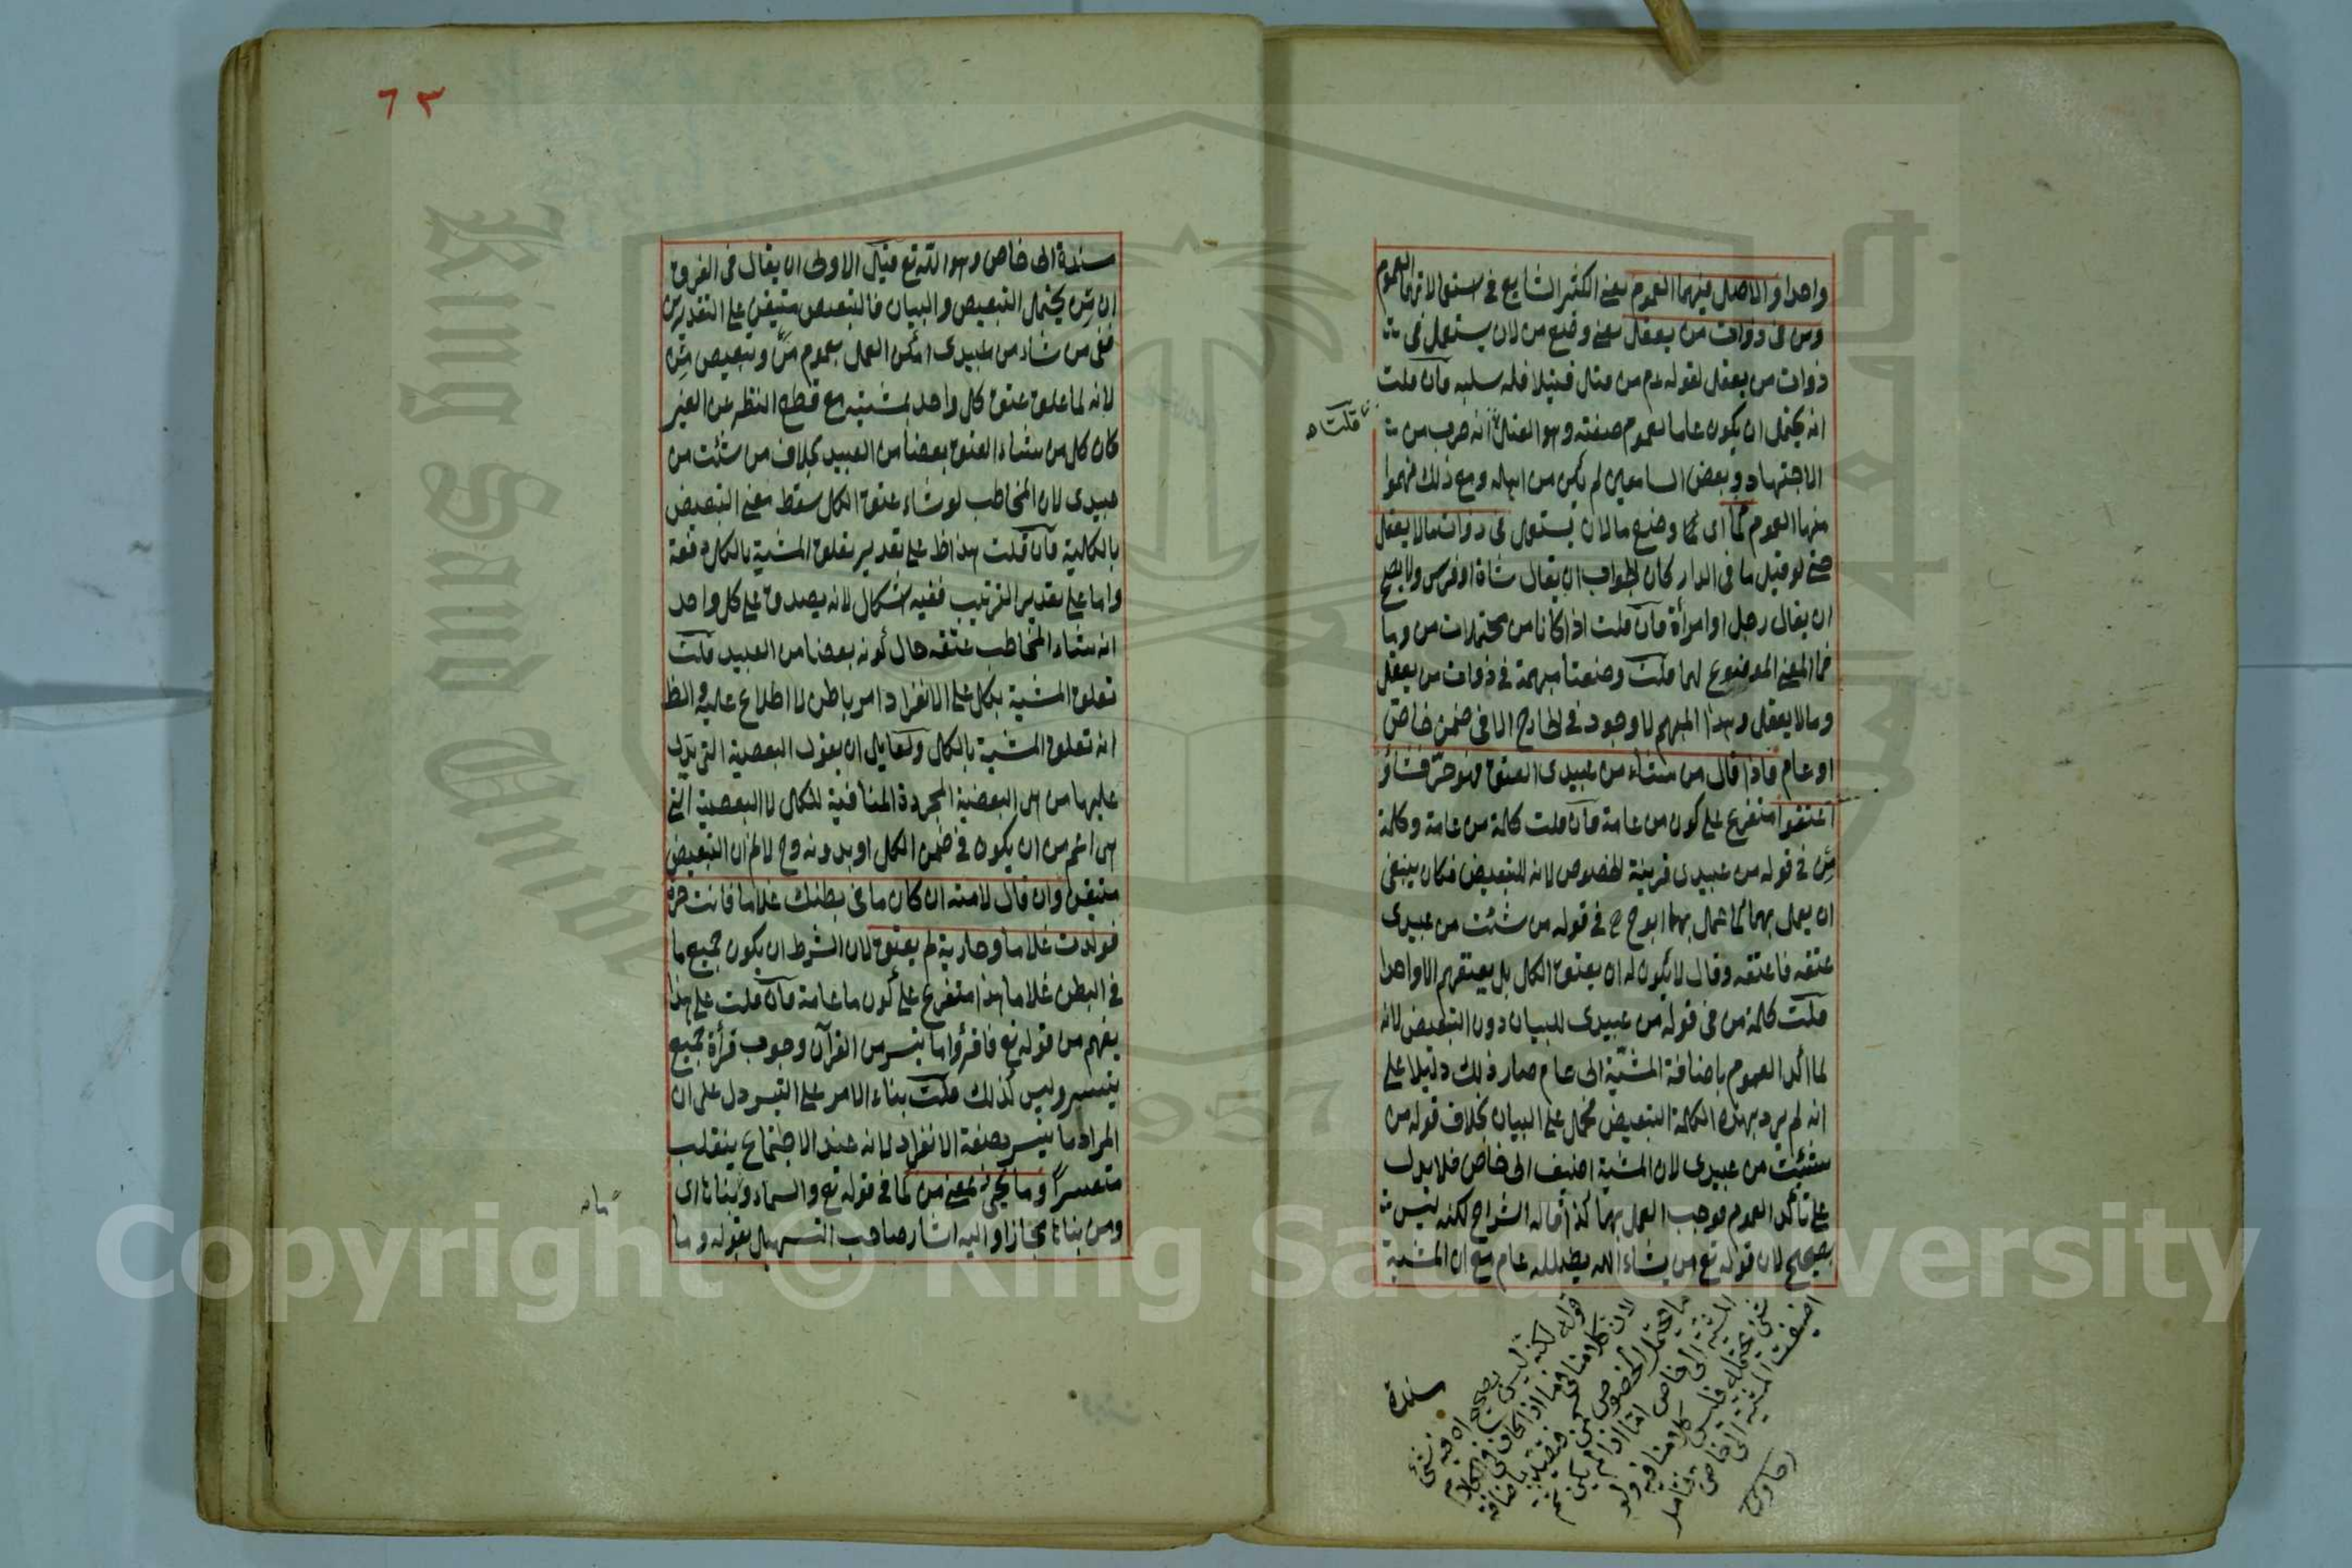 واحدا والاصل فيهما العموم يعنى الكثير الشايع فى استعمالاتهما العموم
ومن فى ذوات من يعقل يعنى وضع من لان يستعمل فى
ذوات من يعقل لقوله عم من قتل قتيلا فله سلبه فان قلت
انه يحتمل ان يكون عاما لعموم صفته وهو القتل انه ضرب من
الاجتهاد وبعض السامعين لم يكن من اهله ومع ذلك فهموا
منها العموم كما اى كما وضع ما لان يستعمل فى ذوات ما لا يعقل
حتى لو قيل ما فى الدار كان الجواب ان يقال شاة او فرس ولا يصح
ان يقال رجل او امرأة فان قلت اذا كانا من محتملات من وما
فما المعنى الموضوع لهما قلت وضعتا مبهمة فى ذوات من يعقل
وما لا يعقل وهذا المبهم لا وجود فى الخارج الا فى ضمن خاص
او عام فاذا قال من شاء من عبيدى العتق فهو حر فشاؤ
اعتقوا متفرع على كون من عامة فان قلت كلمة من عامة وكلمة
مِن فى قوله من عبيدى قرينة الخصوص لانه للتبعيض فكان ينبغى
ان يعمل بهما كما عمل بهما ابو ح ح فى قوله من شئت من عبيدى
عتقه فاعتقه وقال لا يكون له ان يعتق الكل بل يعتقهم الا واحدا
قلت كلمة من فى قوله من عبيدى للبيان دون التبعيض لانه
لما اكد العموم باضافة المشيّة الى عام صار ذلك دليلا على
انه لم يرد بهذه الكلمة التبعيض فحمل على البيان بخلاف قوله من
شئت من عبيدى لان المشية اضيف الى خاص فلا يدل
على تأكد العموم فوجب العمل بهما كذا قاله الشراح لكنه ليس
بصحيح لان قوله تع من يشاء الله يضلله عام مع ان المشية
قلت
قوله لكنه ليس بصحيح اه فيه شئ
لان كلامنا فيما اذا كان فى الكلام
ما يحتمل الخصوص فيقيد باضافة
المشية الى خاص اما اذا لم يكن ثمه
شئ يحتمله فليس كلامنا فيه ولو
اضيفت المشية الى خاص فتأمل
رهاوى
مسندة
٦٣
مسندة الى خاص وهو الله تع قيل الاولى ان يقال فى الفرق
ان مِن يحتمل التبعيض والبيان فالتبعيض متيقن على التقديرين
ففى من شاء من عبيدى امكن العمل بعموم مَن وتبعيض مِن
لانه لما علق عتق كل واحد بمشيته مع قطع النظر عن الغير
كان كل من شاء العتق بعضا من العبيد بخلاف من شئت من
عبيدى لان المخاطب لو شاء عتق الكل سقط معنى التبعيض
بالكلية فان قلت هذا ظ على تقدير تعلق المشية بالكل دفعة
واما على تقدير الترتيب ففيه اشكال لانه يصدق على كل واحد
انه شاء المخاطب عتقه حال كونه بعضا من العبيد قلت
تعلق المشية بكل على الانفراد امر باطن لا اطلاع عليه والظ
انه تعلق المشية بالكل ولقايل ان يقول البعضية التى يدل
عليها من هى البعضية المجردة المنافية للكل لا البعضية التى
هى اعم من ان يكون فى ضمن الكل او بدونه وح لا نم ان التبعيض
متيقن وان قال لامته ان كان ما فى بطنك غلاما فانت حرة
فولدت غلاما وجارية لم يعتق لان الشرط ان يكون جميع ما
فى البطن غلاما هذا متفرع على كون ما عامة فان قلت على هذا
يفهم من قوله تع فاقرؤا ما تيسر من القرآن وجوب قرأة جميع
يتيسر وليس كذلك قلت بناء الامر على التيسر دل على ان
المراد ما تيسر بصفة الانفراد لانه عند الاجتماع ينقلب
متعسرا وما يجئ بمعنى من كما فى قوله تع والسماء وما بناها اى
ومن بناها مجازا واليه اشار صاحب التسهيل بقوله وما
ما